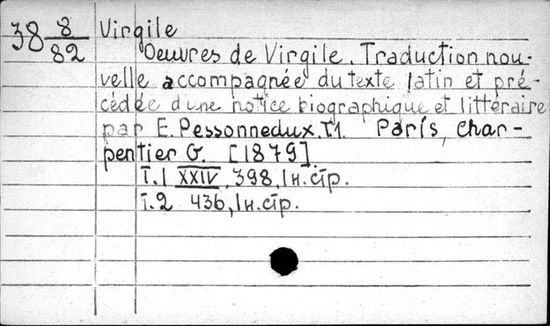 38 8/82 Virgile
Oeuvres de Virgile. Traduction nou-
velle accompagnée du texte latin et pré-
cédée d'une notice biographique et littéraire
par E. Pessonneaux. T1. Paris, Char-
pentier G. [1879].
T.1 XXIV, 398, 1 н. стр.
T.2 436, 1 н. стр.